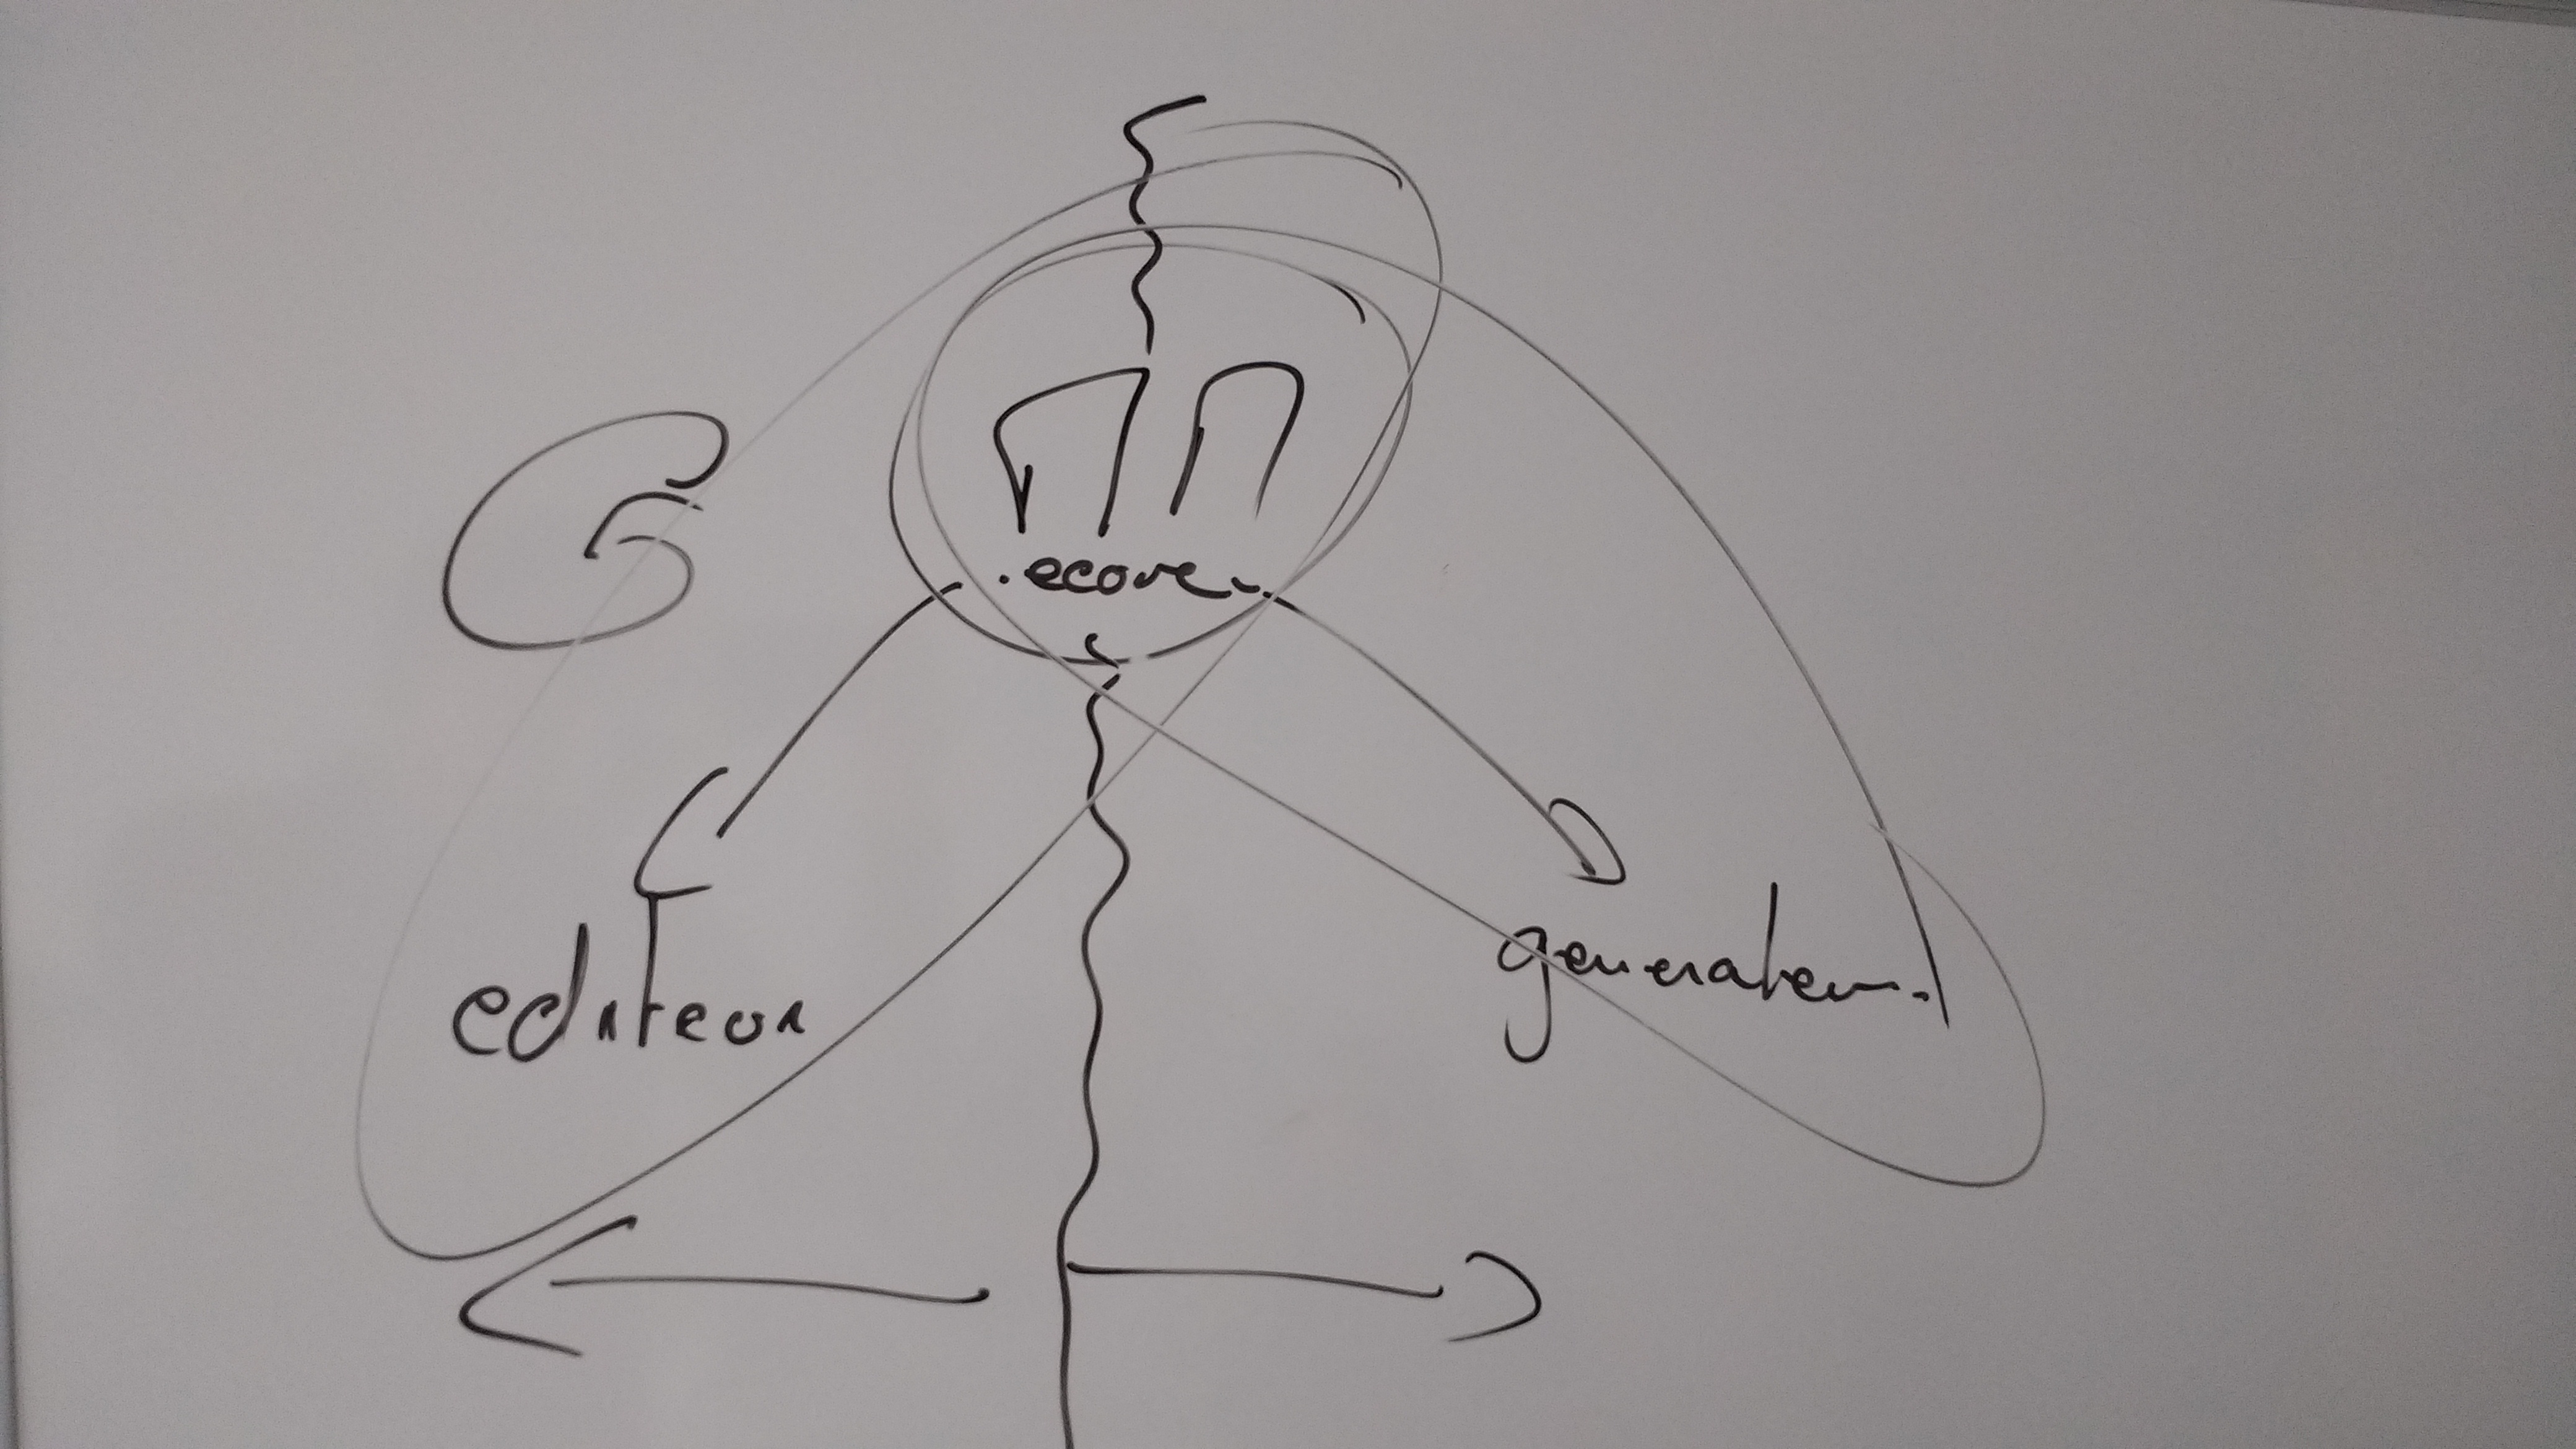 G
MM
.ecore
editeur
generateur